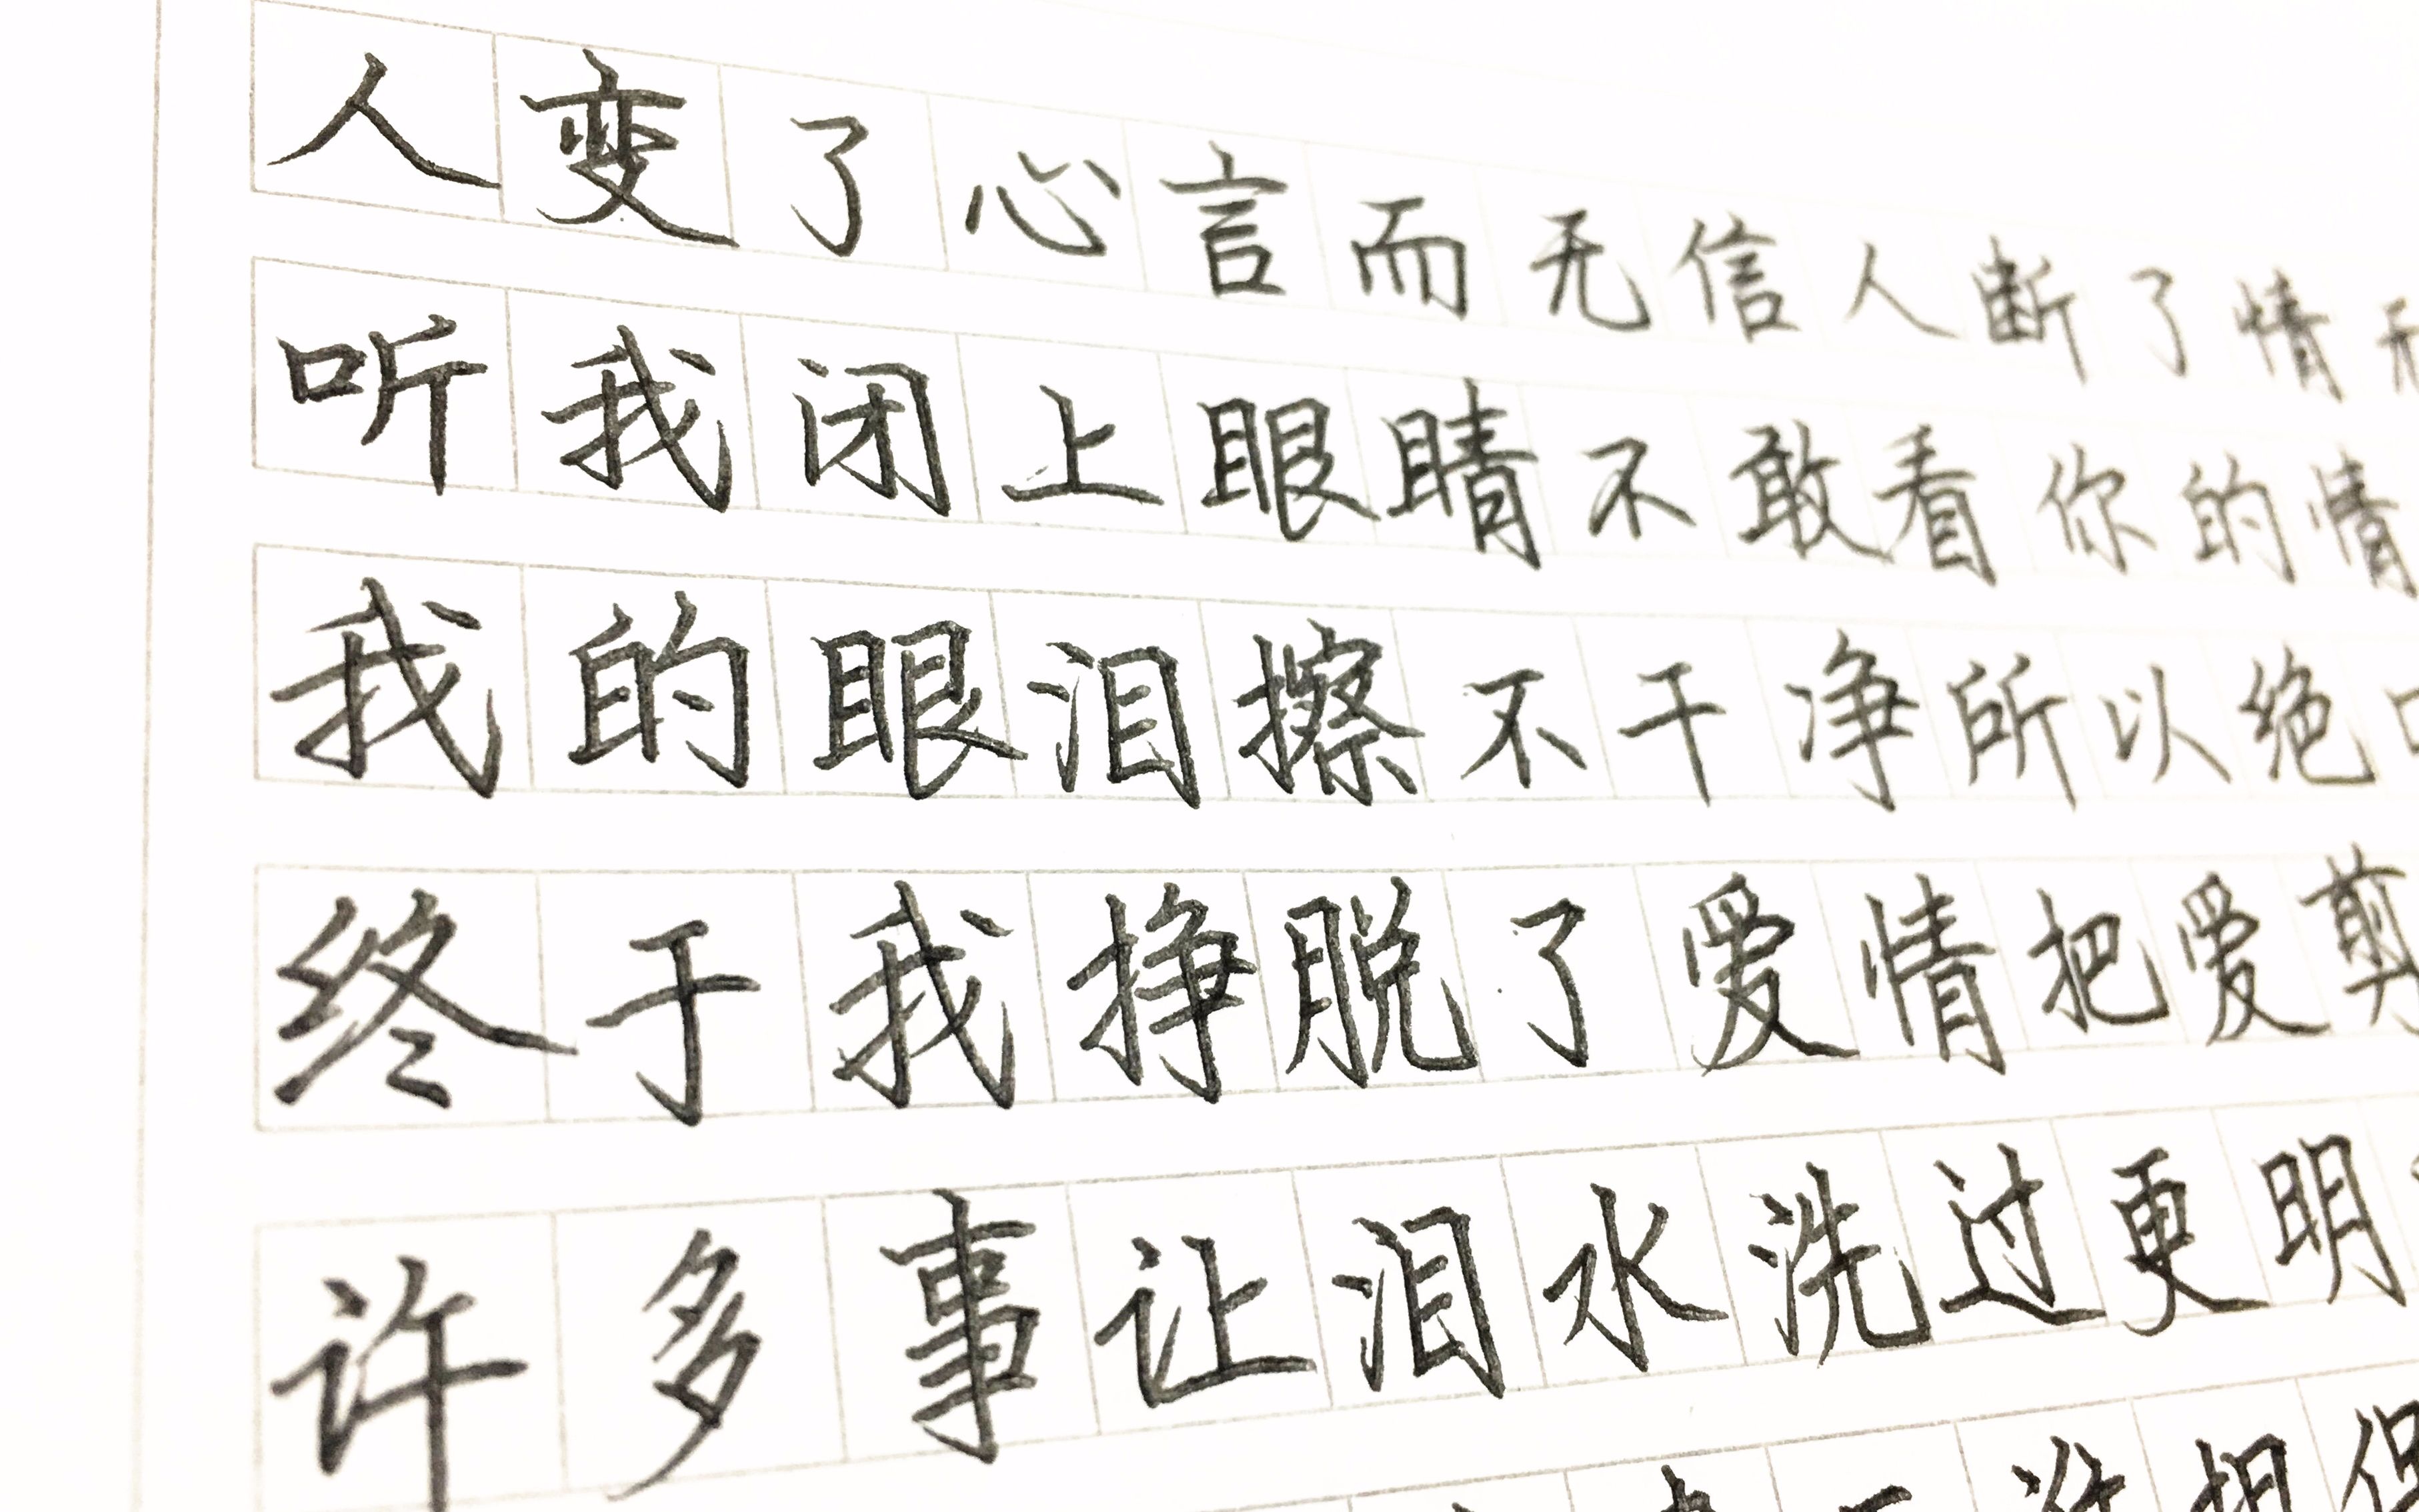 人变了心言而无信人断了情
听我闭上眼睛不敢看你的情
我的眼泪擦不干净所以绝口
终于我挣脱了爱情把爱剪
许多事让泪水洗过更明